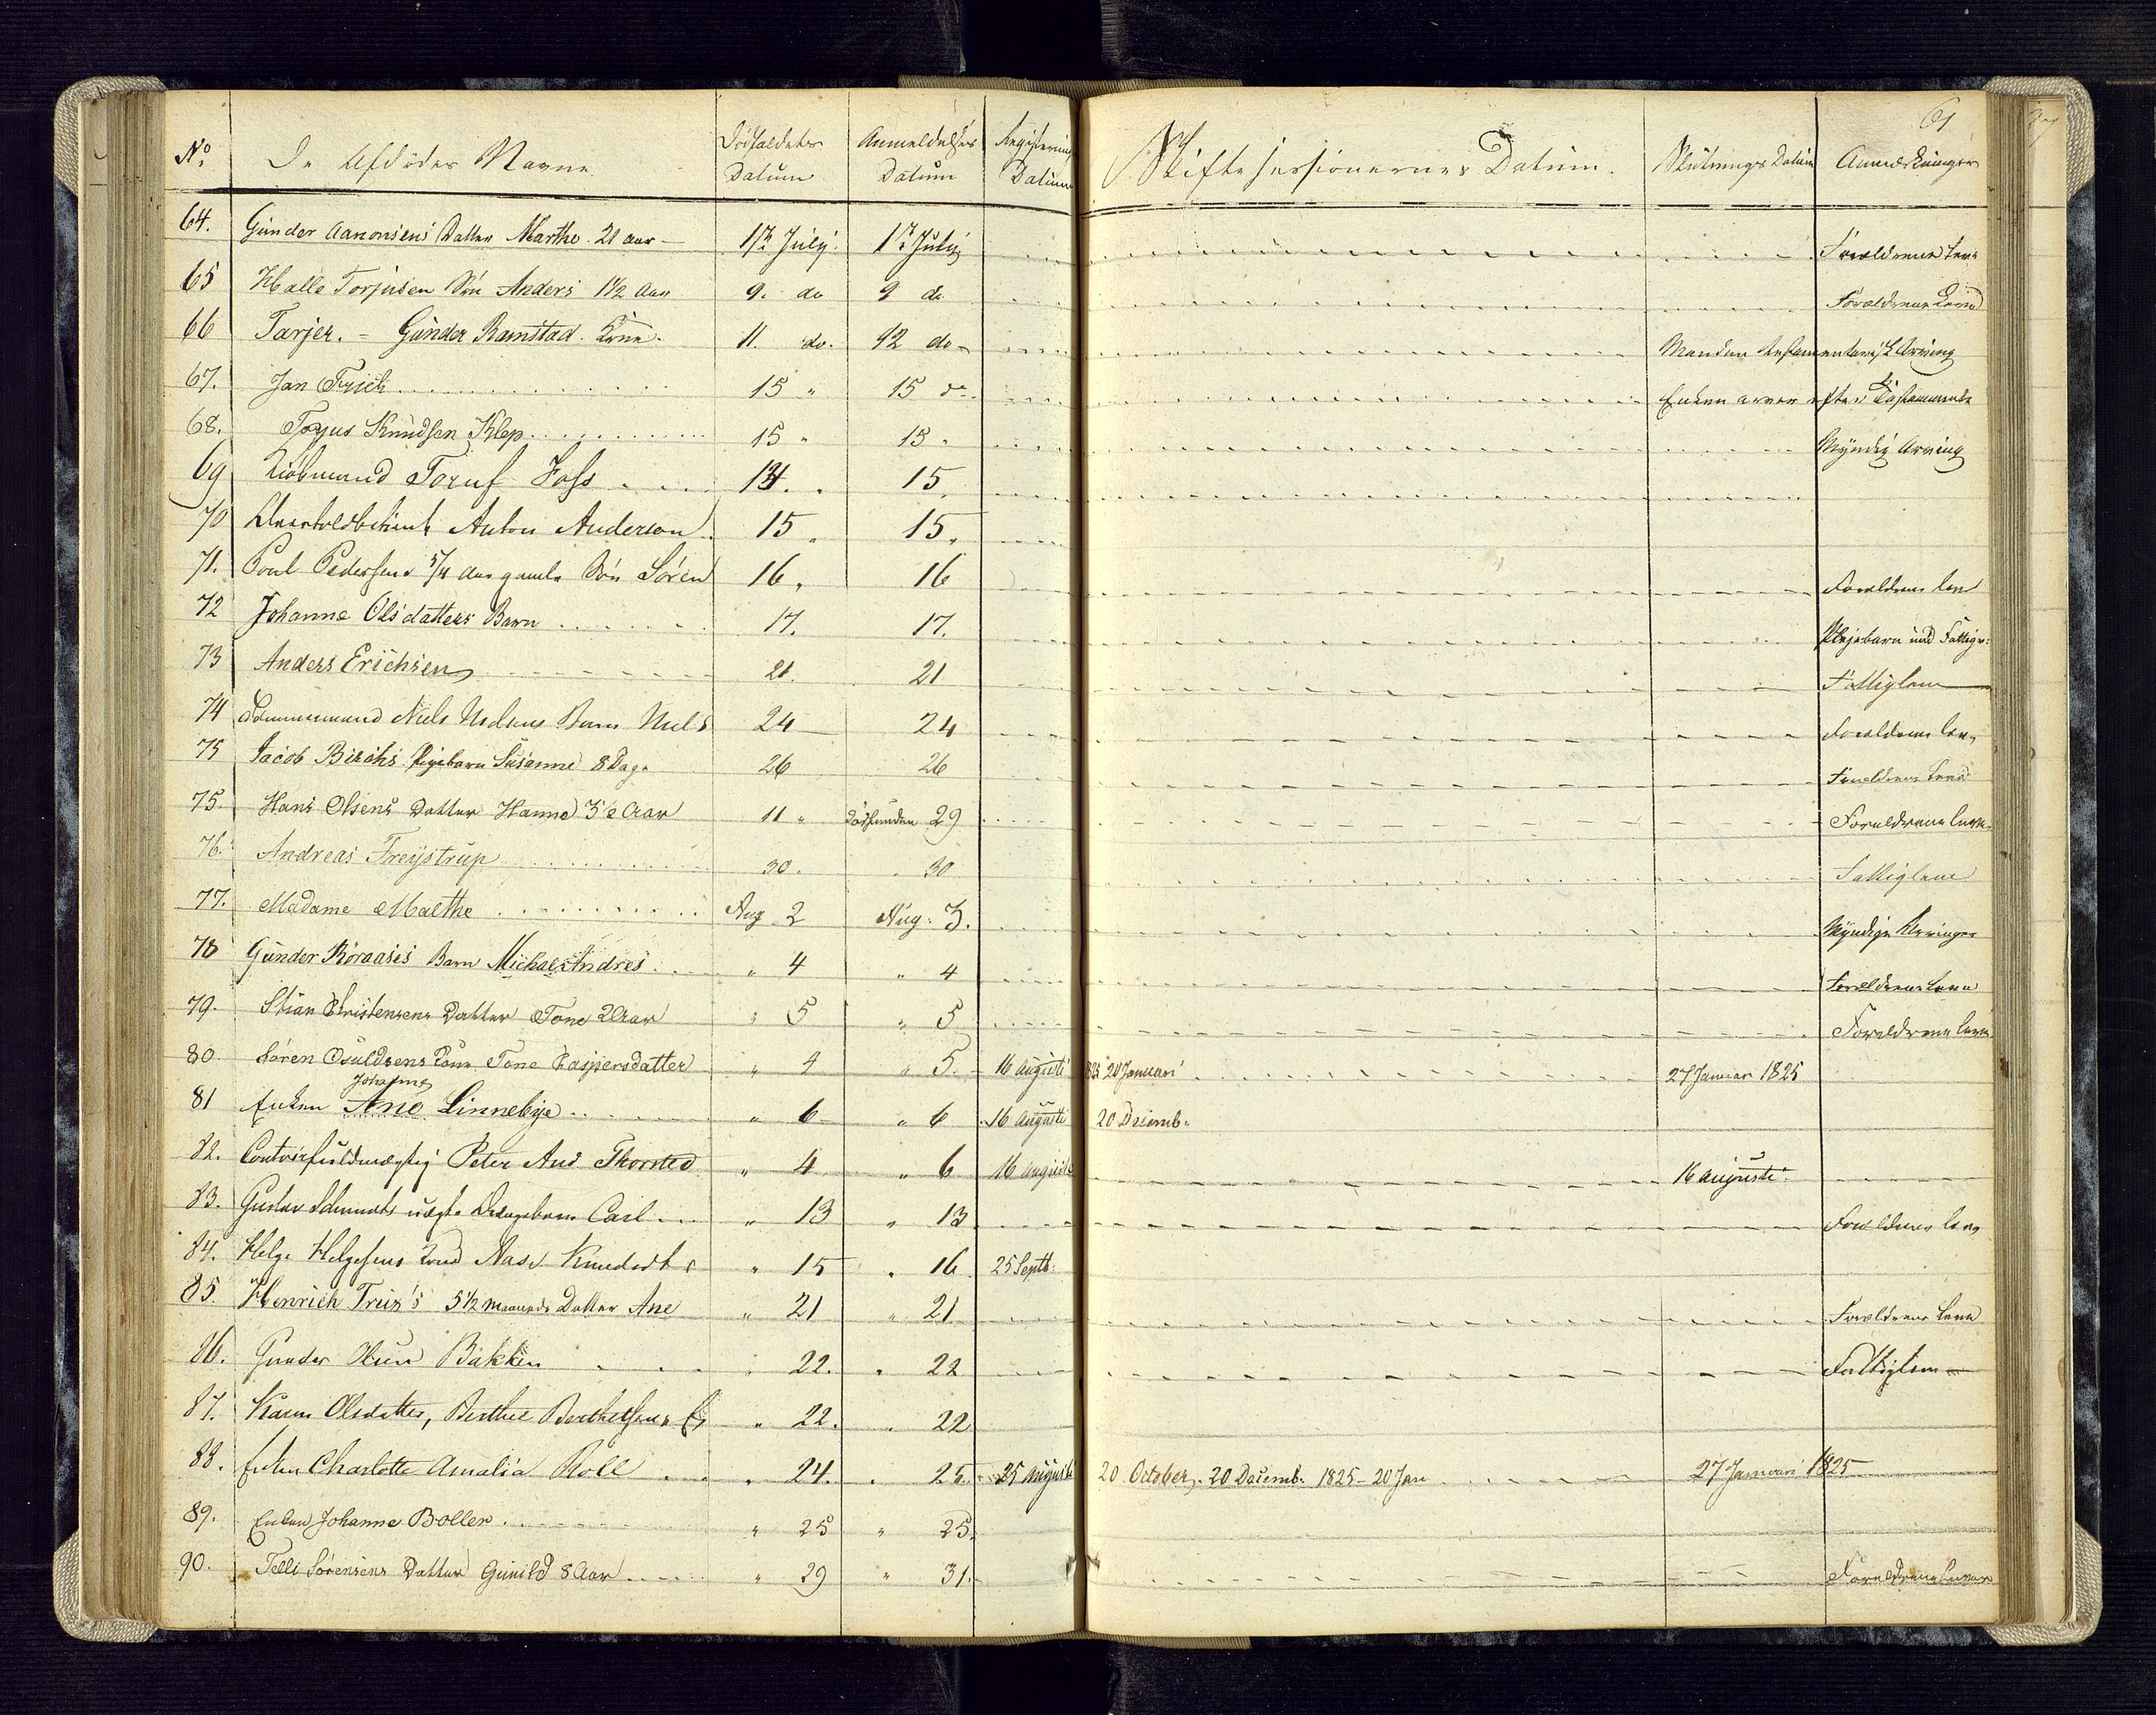 61
No. De Afdödes Navne Dödsfaldets Datum Anmeldelses Datum Registerings Datum Skiftesessionernes Datum. Slutnings Datum Anmærkninger
64. Gunder Aanonsens Datter Marthe 21 aar - 1ste July. 1ste July Forældrene leve
65 Halle Torjusen Sön Anders 1 1/2 Aar 9. do 9 do Forældrene Leve
66 Tarjer. = Gunder Ramstad. Kone. 11. do. 12 do - Manden testamentarisk Arving
67. Jan Frich 15 " 15 do Enken arver efter Testamente
68. Torjus Knudsen Klep 15 " 15 " Myndig Arving
69 Kiöbmand Foss 14. 15.
70 Anton Anderson 15 " 15 "
71. Poul Pedersens 5/4 Aar gamle Sön Sören 16. 16 Forældrene leve
72 Johanne Olsdatters Barn 17. 17. Plejebarn
73 Anders Erichsen 21. 21 Fattiglem
74 Tömmermand Niels Barn Niels 24 24 Forældrene leve
75 Jacob Birchs Pigebarn Susanne 8 Dage 26 26 Forældrene leve
75. Hans Olsens Datter Hanne 3 1/2 Aar 11 " 29 Forældrene leve
76. Andreas Freystrup 30. 30 Fattiglem
77. Madame Malthe Aug 2 Aug. 3. Myndige Arvinger
78 Gunder Röraases Barn Michael Andres " 4 " 4 Forældrene leve
79. Stian Christensens Datter Tone 2 Aar " 5 " 5 Forældrene leve
80. Sören Osuldsens Kone Tone Caspersdatter " 4 " 5. 16 augusti 825 20 Januari 27 Januar 1825
Johanne
81 Enken Ane Linnebye " 6 " 6 16 augusti 20 Decemb.
82. Contoirfuldmægtig Peter And Thorsted " 4 " 6 16 augusti 16 augusti
83. Gustav Schmidts uægte Drengebarn Carl " 13 " 13 Forældrene leve
84. Helge Helgesens Kone Aase Knudsdtr " 15 " 16 25 Septb.
85. Henrich Treiz's 5 1/2 Maaneds Datter Ane " 21 " 21 Forældrene leve
86. Gunder Olsen Bakken " 22. " 22 Fattiglem
87. Karen Olsdatter, Berthel Berthelsens " 22. " 22
88. Enken Charlotte Amalia Roll " 24. " 25. 25 augusti 20 October, 20 Decemb. 1825 - 20 Jan 27 Januari 1825
89. Enken Johanne Boller " 25 " 25.
90. Telli Sörensens Datter Gunild 8 Aar " 29 " 31. Forældrene Lever